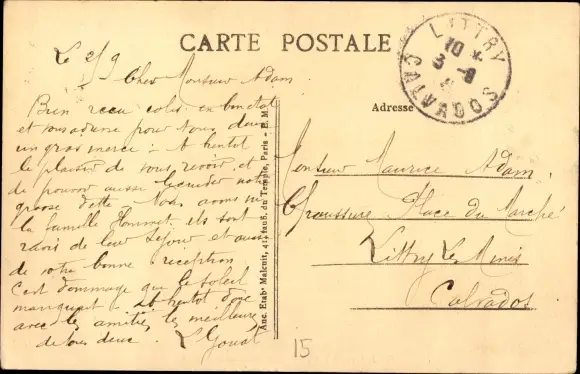 CARTE POSTALE
Le 2/9
Cher Monsieur Adam
Bien reçu colis en bon état
et vous adresse pour Nous deux
un gros merci. A bientôt
le plaisir de vous revoir et
de pouvoir aussi liquider notre
grosse dette. Nous avons vu
la famille ils sont
ravis de leur séjour et aussi
de votre bonne réception
C'est dommage que le soleil
manquait. A bientôt donc
avec les amitiés les meilleures
de tous deux.
Anc. Etabts Malcuit, 41, faub. du Temple, Paris - B. M.
LITTRY
10 *
3 - 9
CALVADOS
Adresse
Monsieur Maurice Adam.
Chaussures Place du Marché
Littry Les Mines
Calvados
15